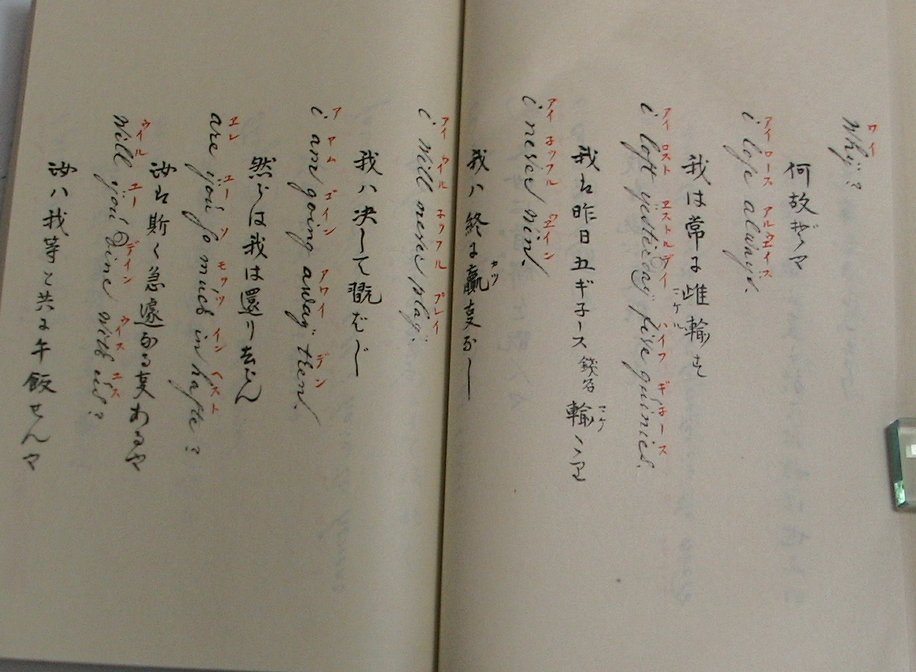 ワイ
why?
何故ぞヤ
アイ ロース アルウエイス
i loſe always.
我は常に雌輸す
アイ ロスト エストルデイ ハイフ ギ子ース
i loſt yesterday five guinies.
我は昨日五ギ子ース 銭名 輸
アイ 子ッフル ウイン
i never win.
我ハ終に贏事なし
アイ ウイル 子ッフル プレイ
i will never play.
我ハ決して翫ばじ
ア アム ゴイン アワイ デン
i am going away then.
然らは我は還り去らん
エレ ユー ソ モッツ イン ヘースト
are you so much in haſte?
汝は斯く急遽なる事あるや
ウイル ユー デイン ウイス ユス
will you Dine with us?
汝ハ我等と共に午飯せんヤ